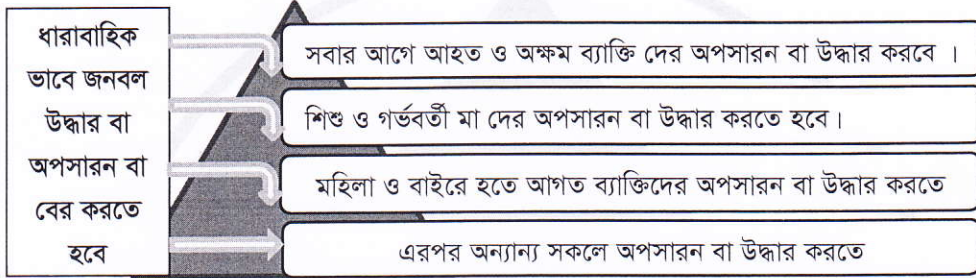 ধারাবাহিক
ভাবে জনবল
উদ্ধার বা
অপসারন বা
বের করতে
হবে
সবার আগে আহত ও অক্ষম ব্যাক্তি দের অপসারন বা উদ্ধার করবে ।
শিশু ও গর্ভবর্তী মা দের অপসারন বা উদ্ধার করতে হবে।
মহিলা ও বাইরে হতে আগত ব্যাক্তিদের অপসারন বা উদ্ধার করতে
এরপর অন্যান্য সকলে অপসারন বা উদ্ধার করতে